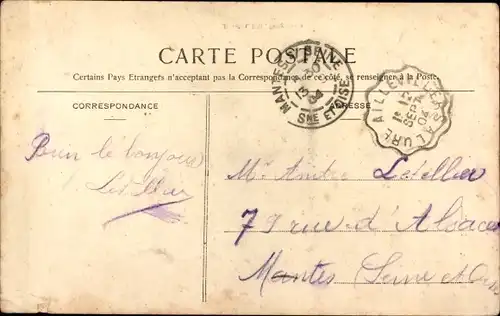 CARTE POSTALE
Certains Pays Etrangers n'acceptant pas la Correspondance de ce côté, se renseigner à la Poste.
CORRESPONDANCE
ADRESSE
MANTES-S-SEINE
30
13 9
04
SNE ET OISE
AILLEVILLERS A LURE
1E 12
SEPT
04
Bien le bonjour
Letellier
Mr André Letellier
79 rue d'Alsace
Mantes Seine et Oise